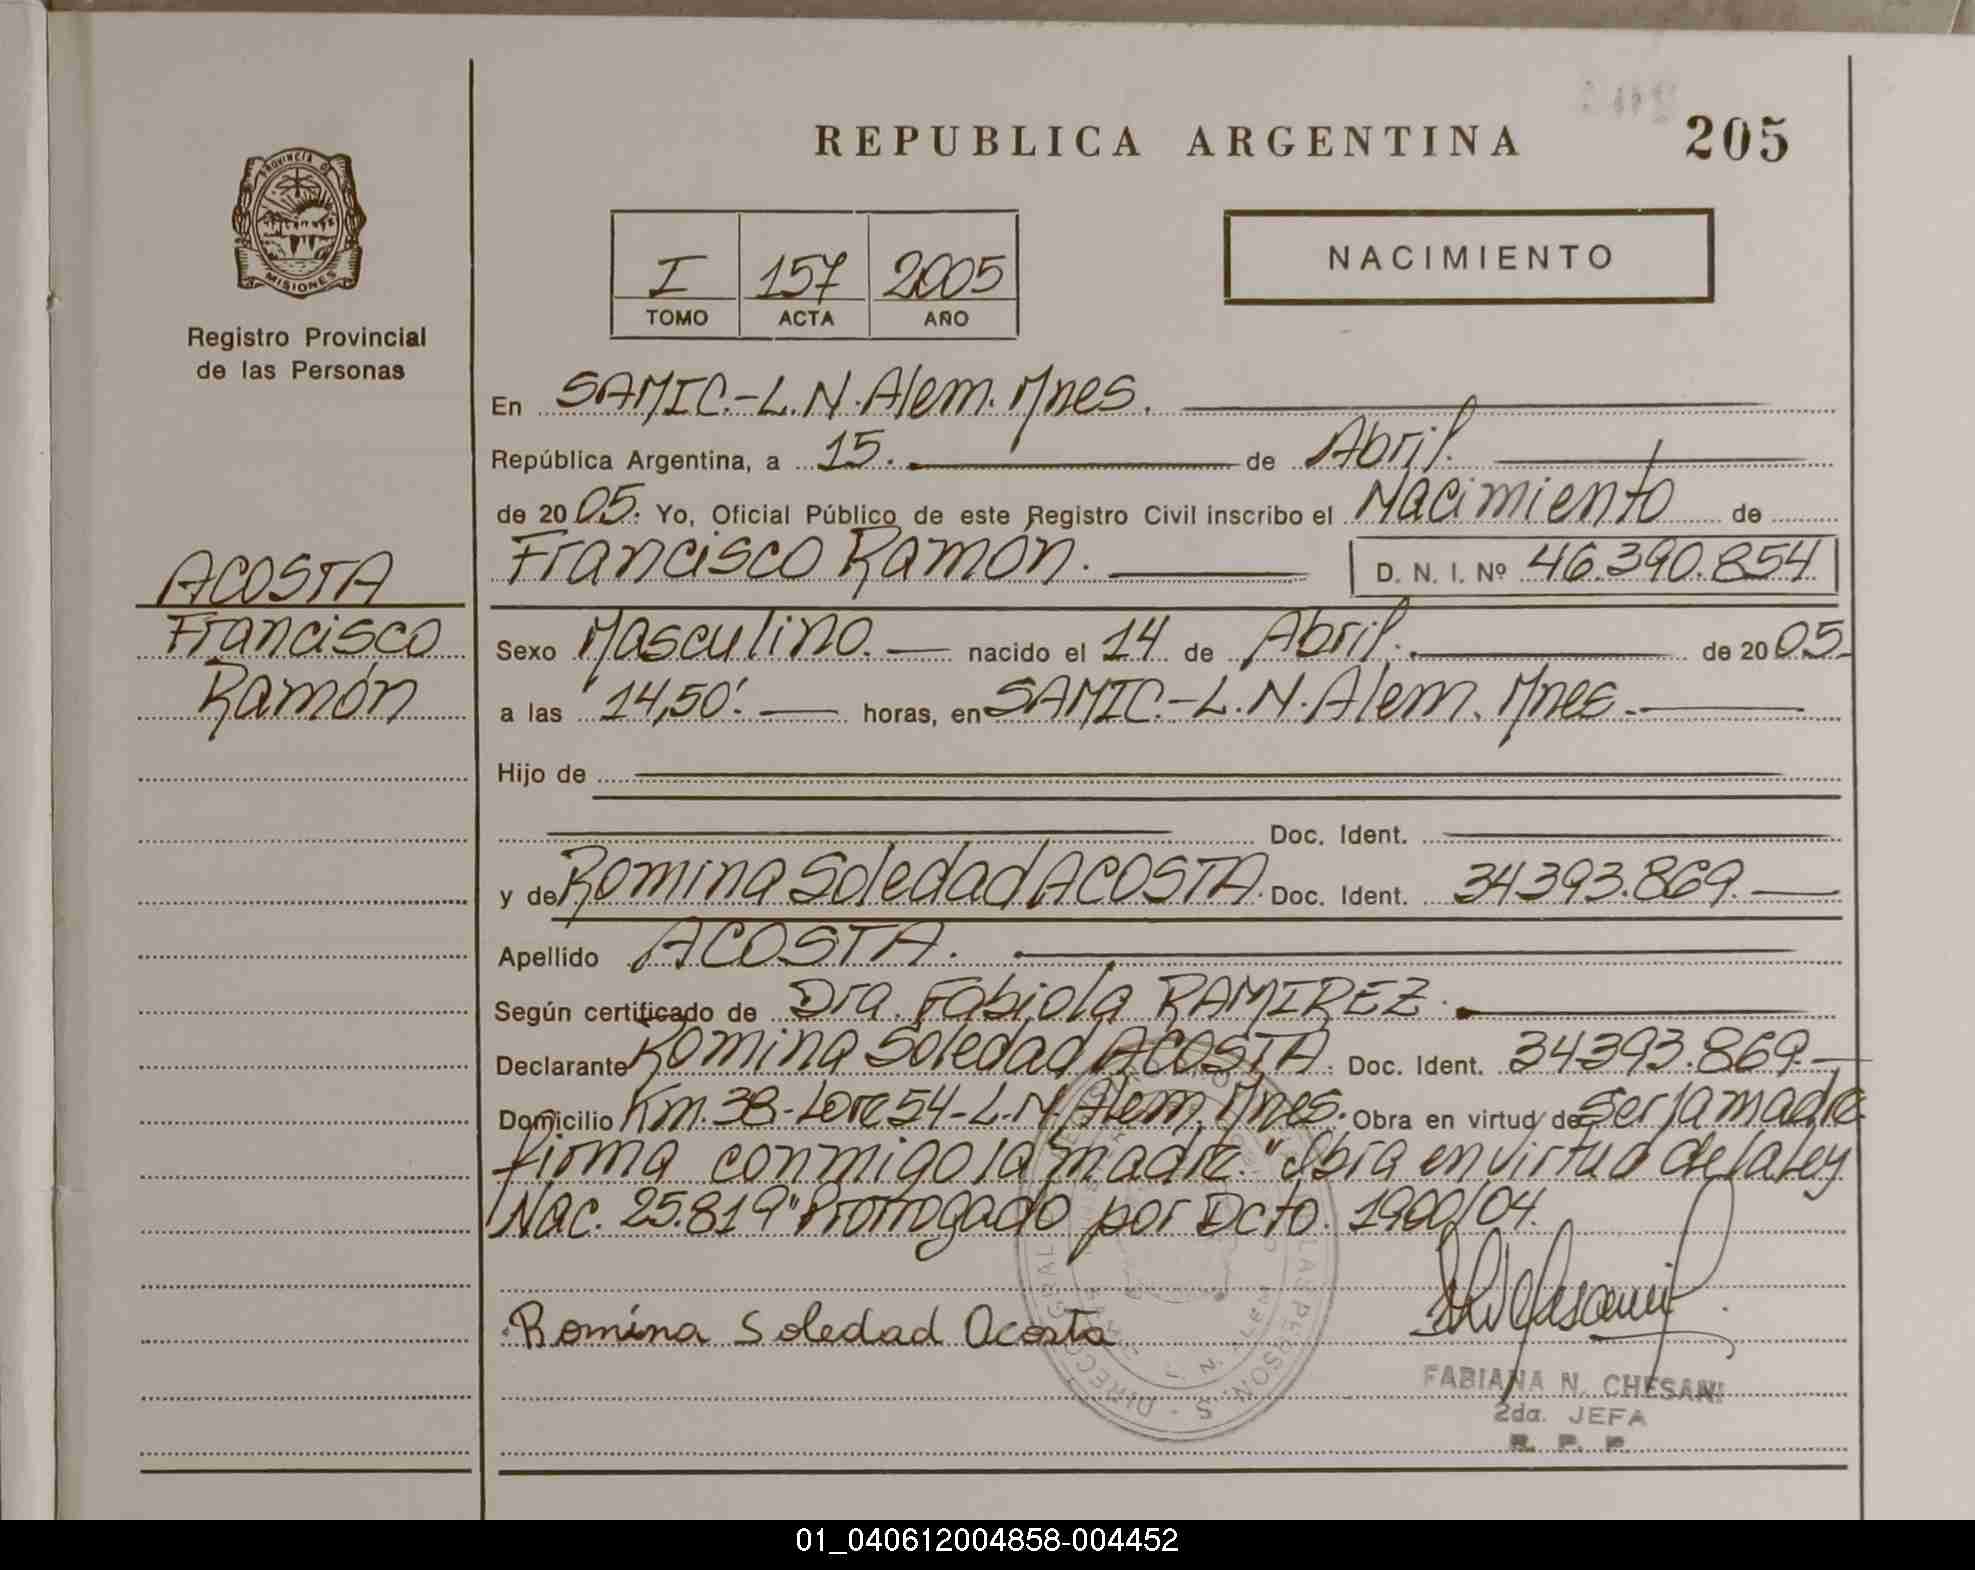 REPUBLICA ARGENTINA
205
PROVINCIA DE
MISIONES
Registro Provincial
de las Personas
I 157 2005
TOMO ACTA AÑO
NACIMIENTO
En SAMIC.-L.N.Alem.Mnes.
República Argentina, a 15. de Abril.
de 2005. Yo, Oficial Público de este Registro Civil inscribo el Nacimiento de
Francisco Ramón. D. N. I. Nº 46.390.854
ACOSTA
Francisco
Ramón
Sexo Masculino. nacido el 14 de Abril. de 2005.
a las 14,50'. horas, en SAMIC.-L.N.Alem.Mnes.
Hijo de
Doc. Ident.
y de Romina Soledad ACOSTA. Doc. Ident. 34393.869.
Apellido ACOSTA.
Según certificado de Dra. Fabiola RAMIREZ.
Declarante Romina Soledad ACOSTA. Doc. Ident. 34393.869.
Domicilio Km.38-Lote 54-L.N.Alem.Mnes. Obra en virtud de ser la madre
firma conmigo la madre. "Obra en virtud de la Ley
Nac. 25.819" Prorrogado por Dcto. 1900/04.
Romina Soledad Acosta
FABIANA N. CHESANI
2da. JEFA
R. P. P.
01_040612004858-004452